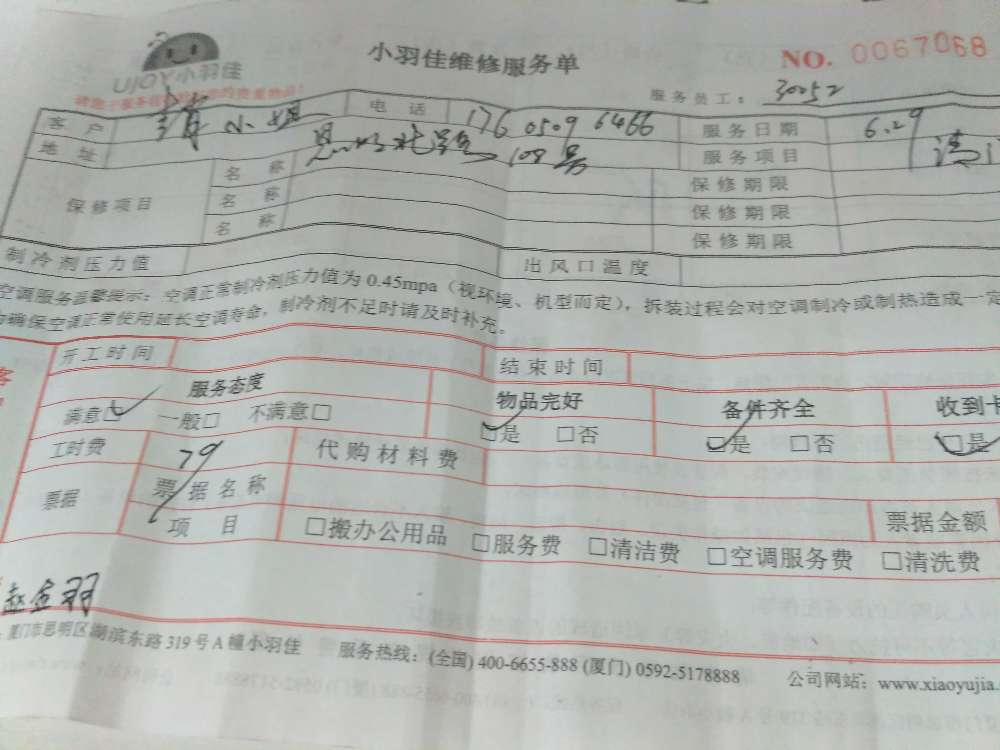 UJOY小羽佳
小羽佳维修服务单
NO. 0067068
服务员工: 30052
客户 小姐 电话 176 0509 6466 服务日期 6.29
地址 108号 服务项目 清
保修项目 名称 保修期限
名称 保修期限
名称 保修期限
制冷剂压力值 出风口温度
空调服务温馨提示：空调正常制冷剂压力值为 0.45mpa（视环境、机型而定），拆装过程会对空调制冷或制热造成一定
确保空调正常使用延长空调寿命，制冷剂不足时请及时补充。
开工时间 结束时间
服务态度 物品完好 备件齐全 收到卡
满意□ 一般□ 不满意□ □是 □否 □是 □否 □是
工时费 79 代购材料费
票据 票据名称 票据金额
项目 □搬办公用品 □服务费 □清洁费 □空调服务费 □清洗费
厦门市思明区湖滨东路 319 号 A 幢小羽佳 服务热线：(全国) 400-6655-888 (厦门) 0592-5178888 公司网站：www.xiaoyujia.